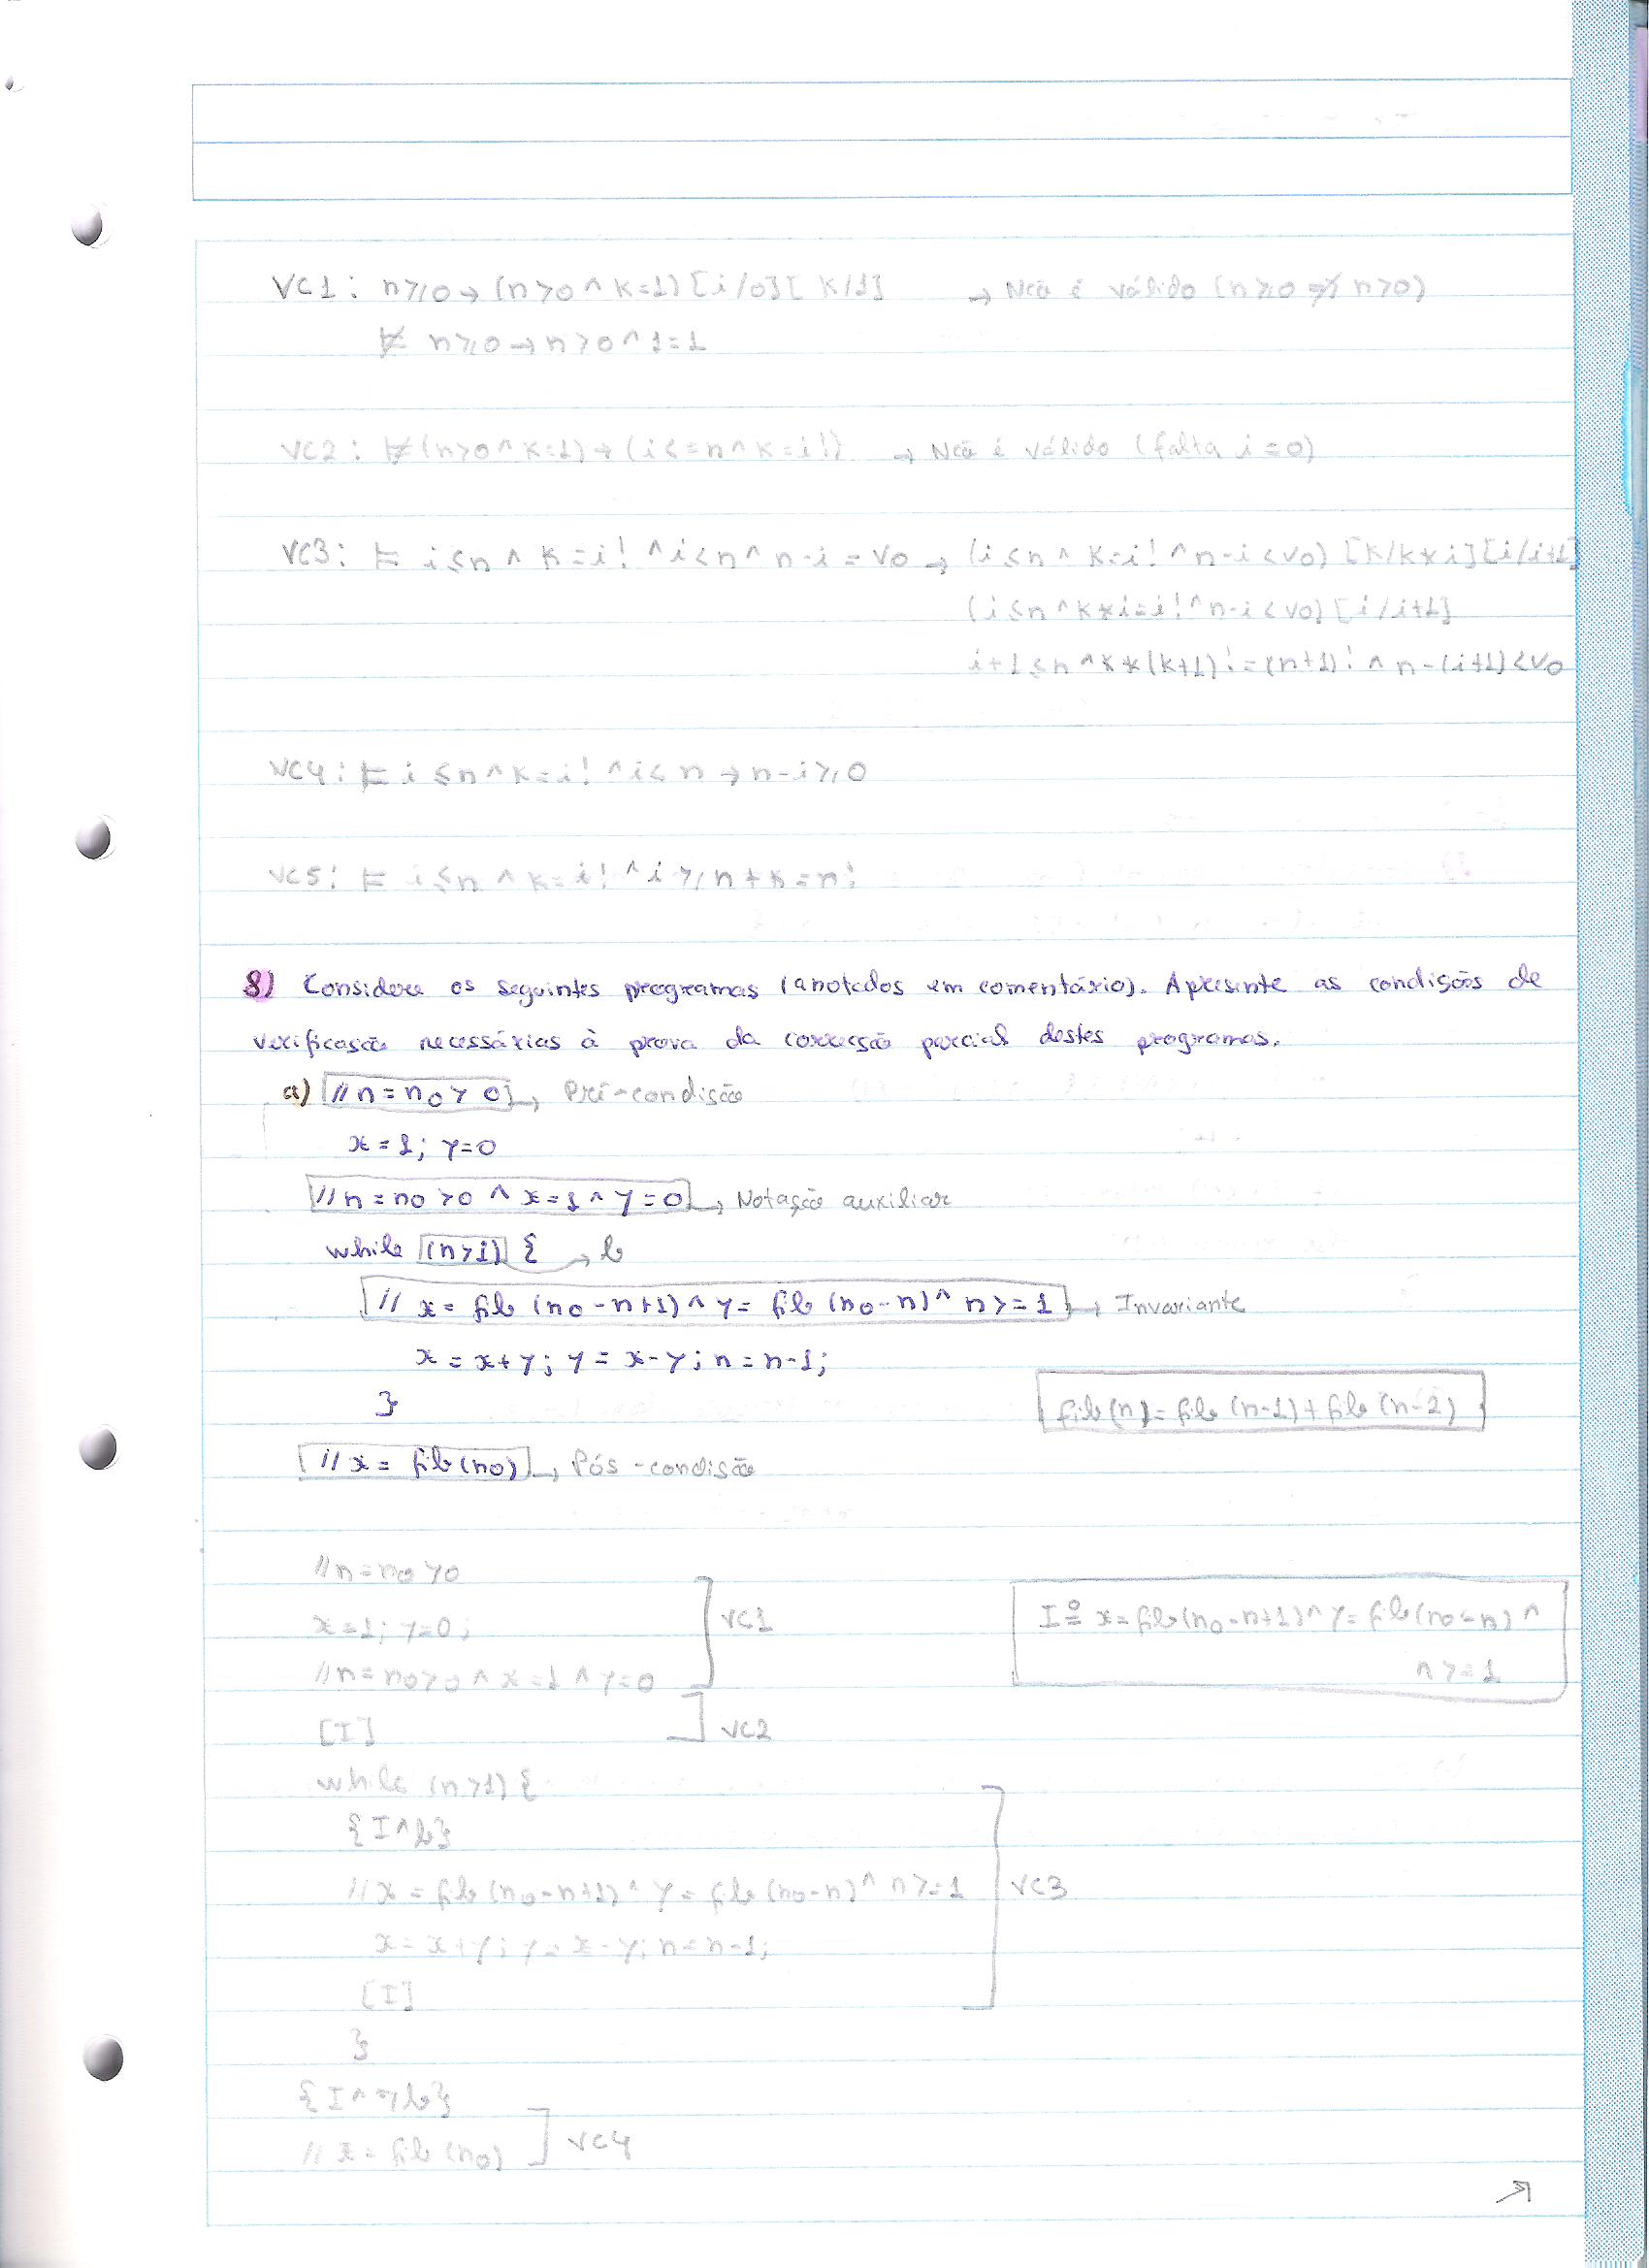 VC1: n⩾0 → (n>0 ^ k=1) [i/0] [k/1] → Não é válido (n⩾0 ⇏ n>0)
⊭ n⩾0 → n>0 ^ 1=1
VC2: ⊭ (n>0 ^ k=1) → (i<=n ^ k=i!) → Não é válido (falta i=0)
VC3: ⊨ i≤n ^ k=i! ^ i<n ^ n-i=v0 → (i≤n ^ k=i! ^ n-i<v0) [k/k*i] [i/i+1]
(i≤n ^ k*i=i! ^ n-i<v0) [i/i+1]
i+1≤n ^ k*(k+1)!=(n+1)! ^ n-(i+1)<v0
VC4: ⊨ i≤n ^ k=i! ^ i<n → n-i⩾0
VC5: ⊨ i≤n ^ k=i! ^ i⩾n → k=n!
8) Considere os seguintes programas (anotados em comentário). Apresente as condições de
verificação necessárias à prova da correcção parcial destes programas.
a) // n = n0 > 0 → Pré-condição
x = 1; y=0
// n = n0 >0 ^ x=1 ^ y=0 → Notação auxiliar
while (n>1) { → b
// x = fib (n0-n+1) ^ y = fib (n0-n) ^ n>=1 → Invariante
x = x+y; y = x-y; n = n-1;
}
fib(n) = fib (n-1) + fib (n-2)
// x = fib(n0) → Pós-condição
// n = n0 >0
x=1; y=0; VC1
// n = n0>0 ^ x=1 ^ y=0
I ≗ x = fib(n0-n+1) ^ y = fib(n0-n) ^
n>=1
[I] VC2
while (n>1) {
{I^b}
// x = fib (n0-n+1) ^ y = fib (n0-n) ^ n>=1 VC3
x = x+y; y = x-y; n = n-1;
[I]
}
{I ^ ¬b}
// x = fib (n0) VC4